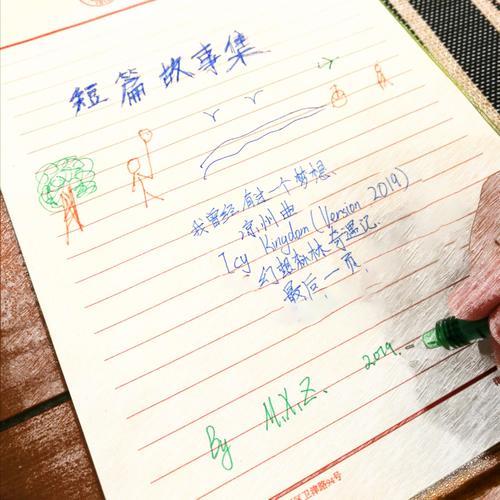 短篇故事集
我曾经有过一个梦想
凉州曲
Icy Kingdom (Version 2019)
幻想森林奇遇记.
最后一页.
2019.
By M.X.Z.
卫津路94号